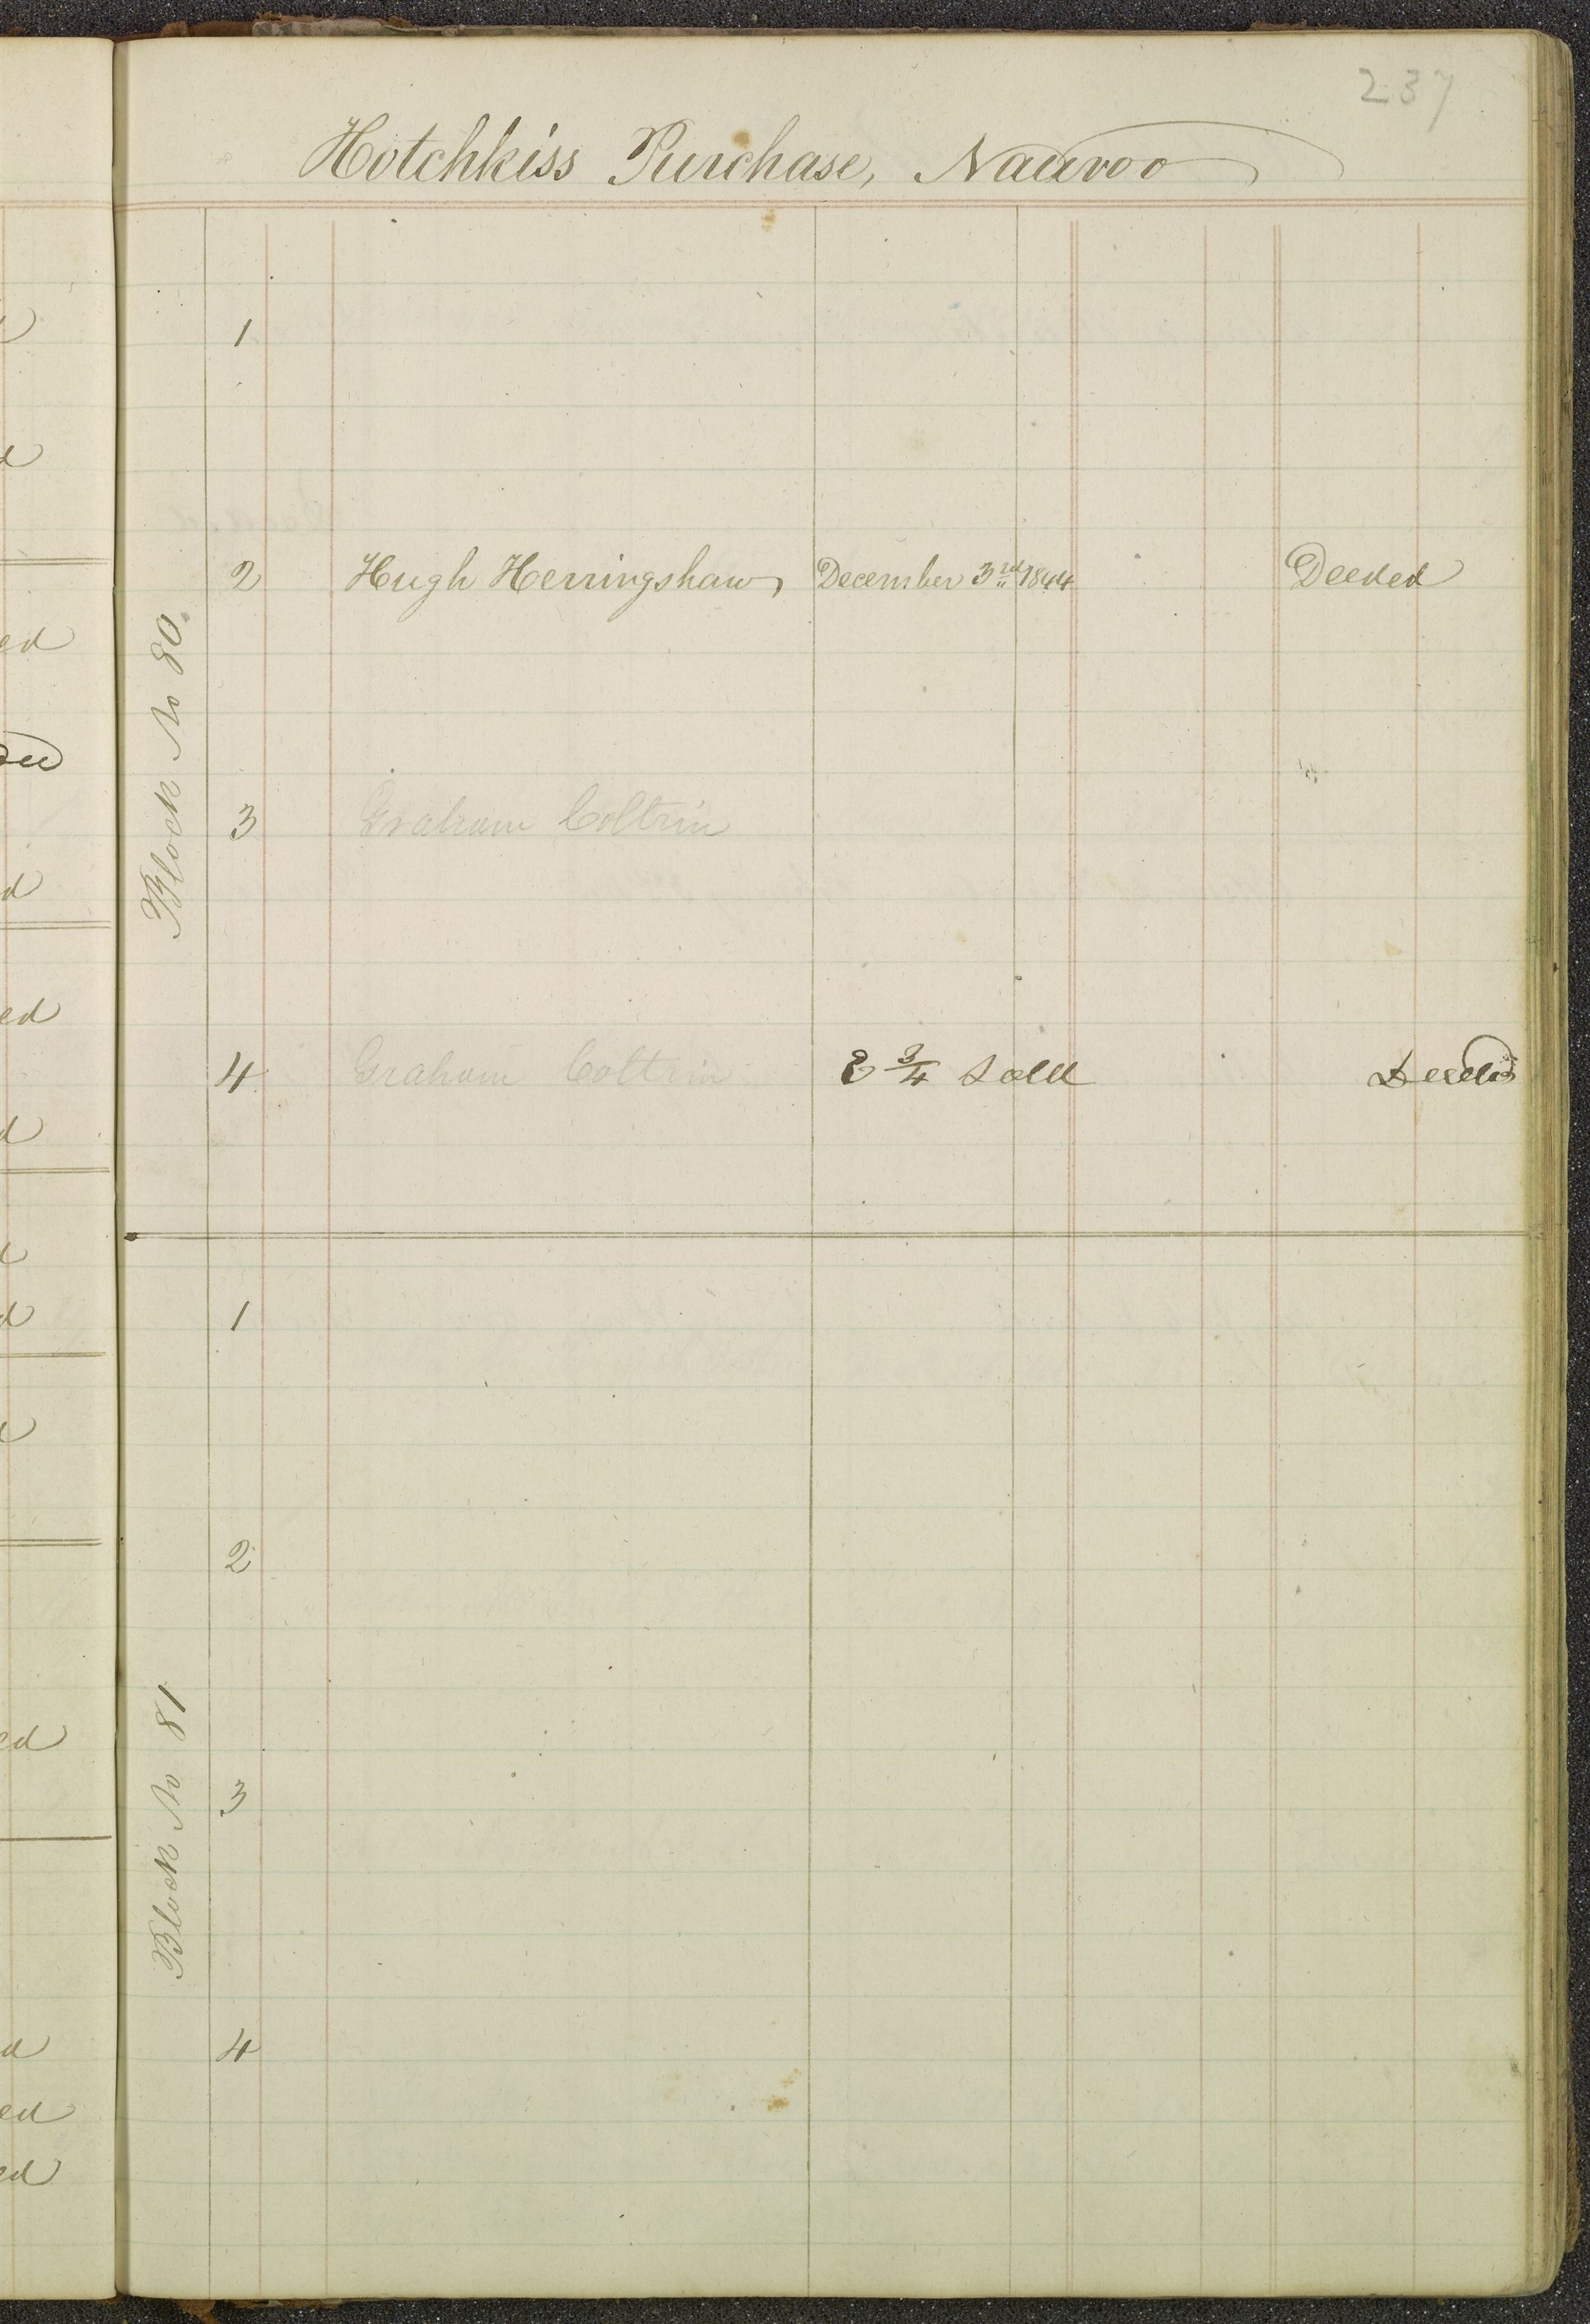 237
Hotchkiss Purchase, Nauvoo
Block No 80.
1
2 Hugh Herringshaw December 3rd 1844 Deeded
3 Graham Coltrin
4 Graham Coltrin E 3/4 Sold Deeded
Block No 81
1
2
3
4